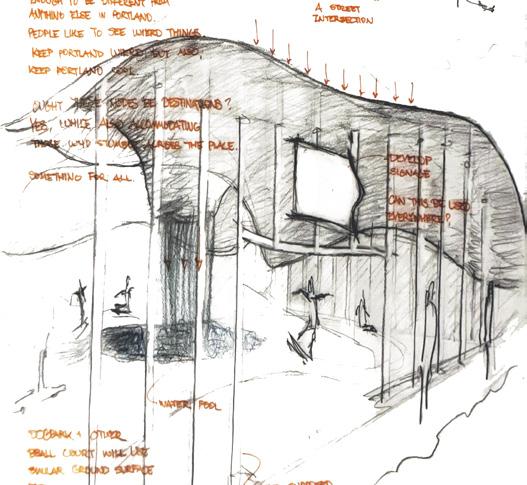 ENOUGH TO BE DIFFERENT FROM
ANYTHING ELSE IN PORTLAND.
PEOPLE LIKE TO SEE WIERD THINGS.
KEEP PORTLAND WIERD BUT ALSO,
KEEP PORTLAND COOL.
OUGHT THESE NODES BE DESTINATIONS?
YES, WHILE ALSO ACCOMMODATING
THOSE WHO STUMBLE ACROSS THE PLACE.
SOMETHING FOR ALL.
A STREET
INTERSECTION
DEVELOP
SIGNAGE
CAN THIS BE USED
EVERYWHERE?
WATER POOL
DOGPARK + OTHER
BBALL COURT WILL USE
SIMILAR GROUND SURFACE